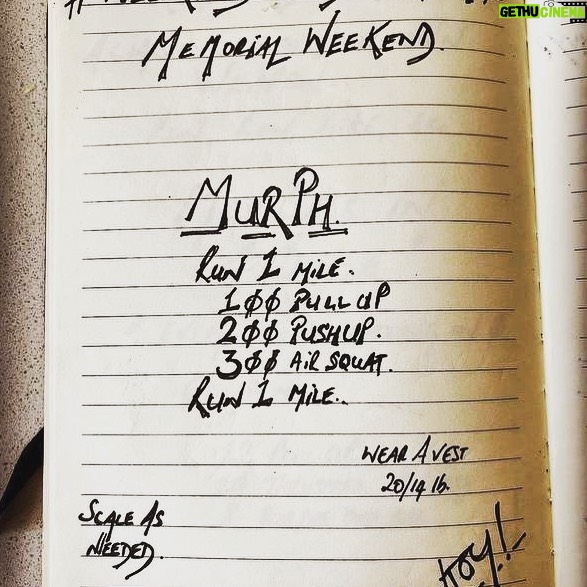 GETHUCINEMA
MEMORIAL WEEKEND.
MURPH.
RUN 1 MILE.
100 PULL UP
200 PUSHUP.
300 AIR SQUAT.
RUN 1 MILE.
WEAR A VEST
20/14 lb.
SCALE AS
NEEDED.